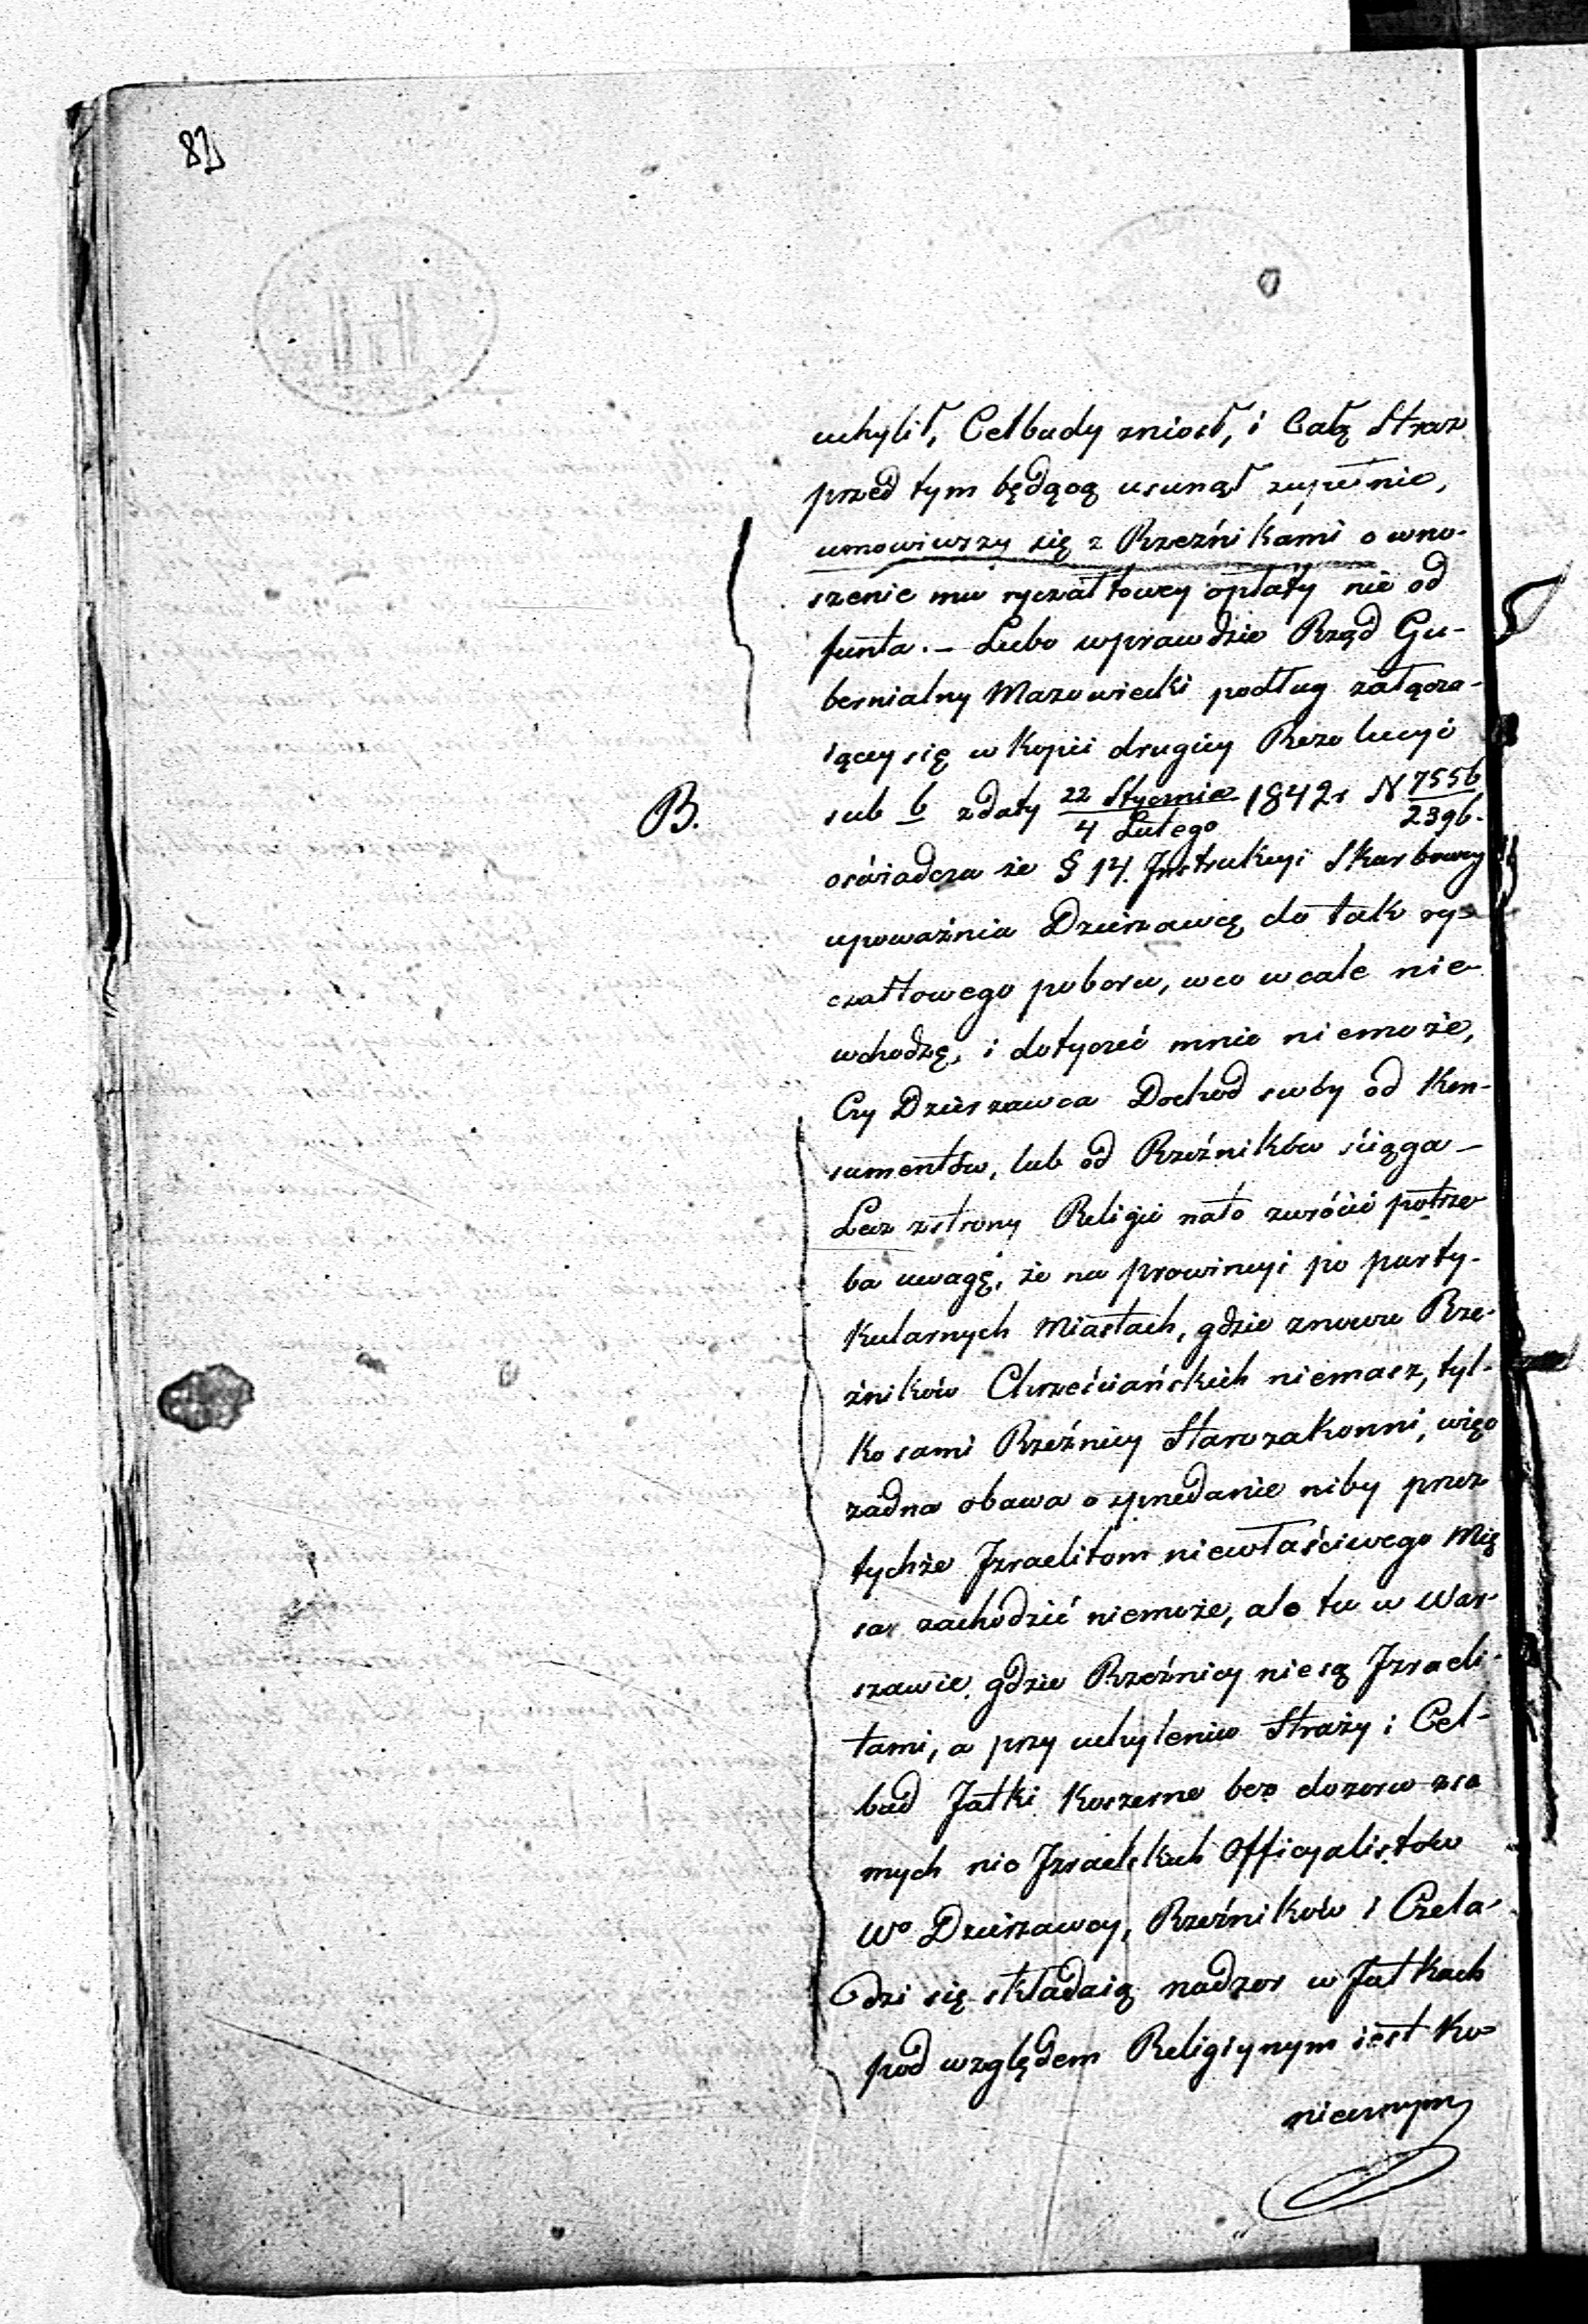 82
uchylił, Celbudy zniosł, i Całą Straz
przed tym będącą usunął zupełnie,
umowiwszy się z Rzeźnikami o wno-
szenie mu ryczałtowey opłaty nie od
funta. – Lubo wprawdzie Rząd Gu-
bernialny Mazowiecki podług załącza-
iącey się w Kopii drugiey Rezolucyi
B.
sub b z daty 22 Stycznia / 4 Lutego 1842 r N 7556 / 2396.
oświadcza że § 14. Instrukcyi Skarbowey
upoważnia Dzierzawcę do tak ry-
czałtowego poboru, w co wcale nie
wchodzę, i dotyczeć mnie niemoże,
Czy Dzierzawca Dochod swóy od Kon-
sumentów, lub od Rzeźników ściąga –
Lecz z strony Religii na to zwrócić potrze
ba uwagę, że na prowincyi po party-
kularnych Miastach, gdzie znowu Rze-
źników Chrześciańskich niemasz, tyl-
ko sami Rzeźnicy Starozakonni, więc
żadna obawa o sprzedanie niby przez
tychże Izraelitom niewłaściwego Mię
sa zachodzić niemoże, ale tu w War-
szawie gdzie Rzeźnicy nie są Izraeli-
tami, a przy uchyleniu Straży i Cel-
bud Jatki Koszerne bez dozoru z sa
mych nie Izraelskich Officyalistów
Wo Dzierzawcy, Rzeźników i Czela-
dzi się składaią nadzor w Jatkach
pod względem Religiynym iest Ko-
niecznym